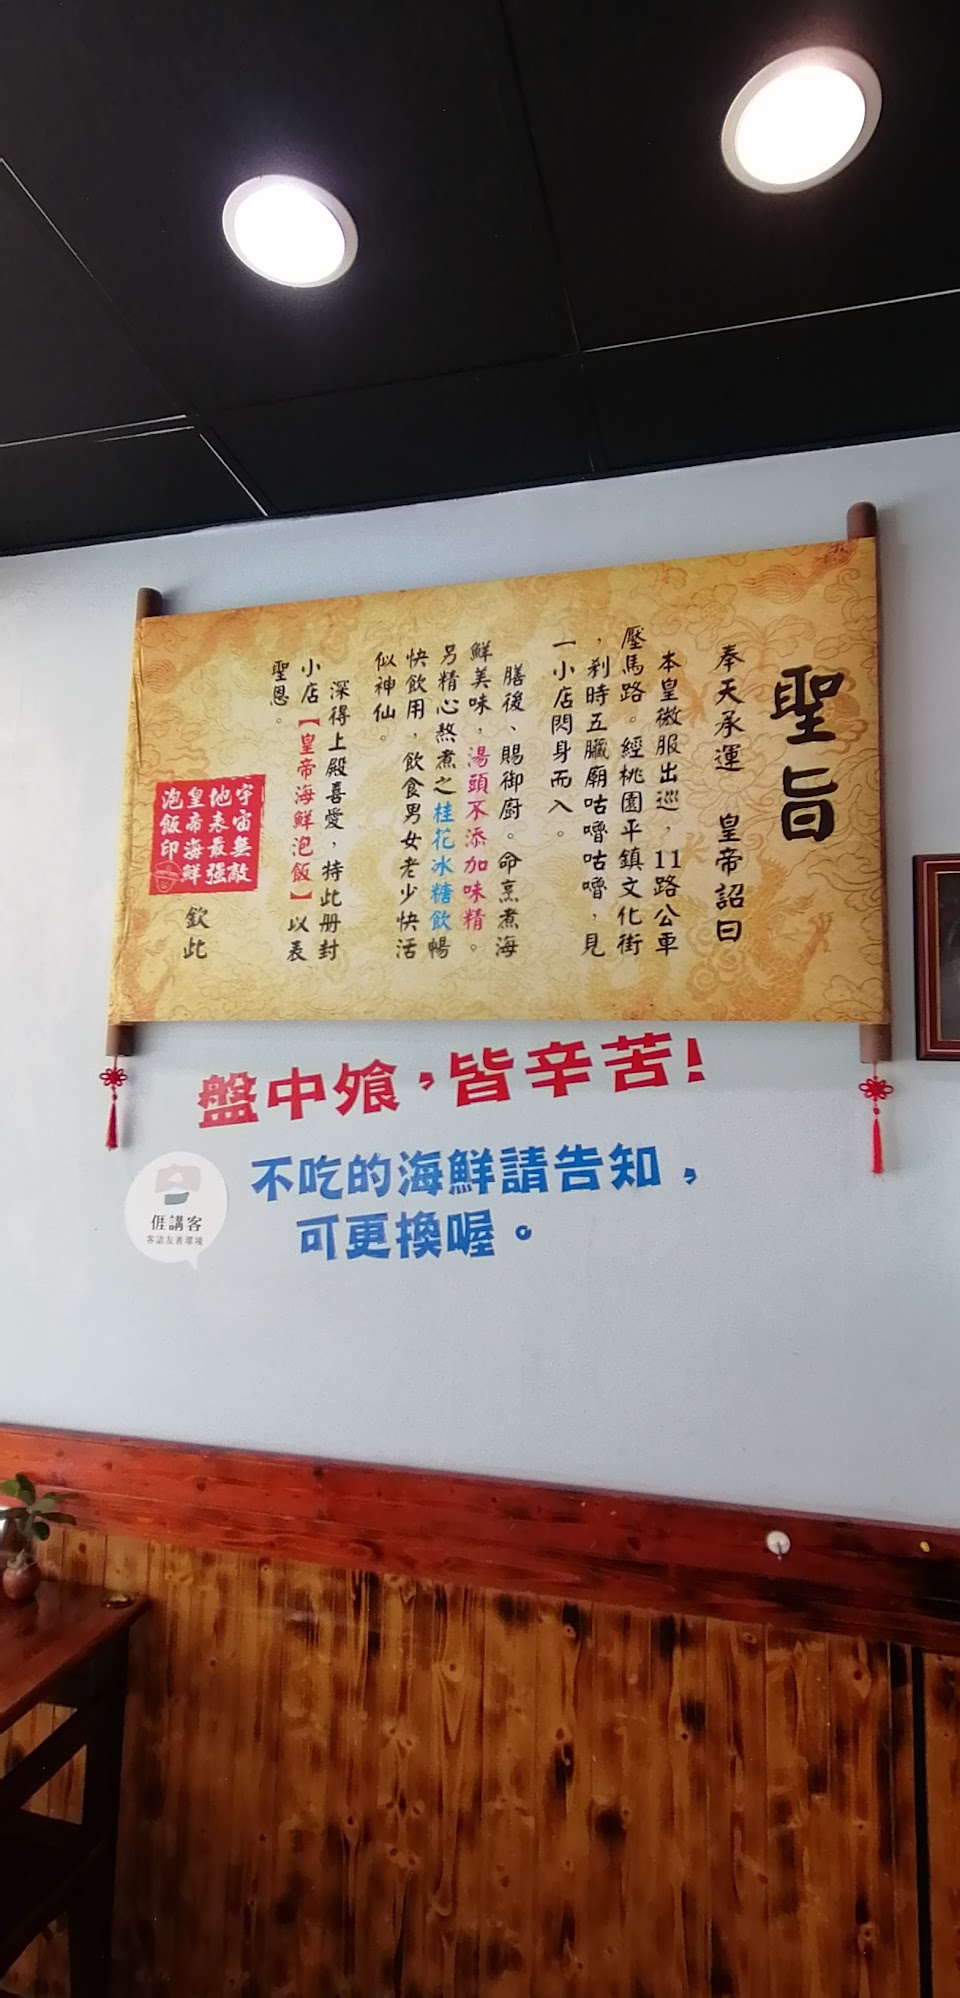 聖旨
奉天承運　皇帝詔曰
本皇微服出巡，11路公車
壓馬路。經桃園平鎮文化街
，剎時五臟廟咕嚕咕嚕，見
一小店閃身而入。
膳後、賜御厨。命烹煮海
鮮美味，湯頭不添加味精。
另精心熬煮之桂花冰糖飲暢
快飲用，飲食男女老少快活
似神仙。
深得上殿喜愛，持此册封
小店【皇帝海鮮泡飯】以表
聖恩。
宇宙無敵
地表最強
皇帝海鮮
泡飯印
欽此
盤中飧，皆辛苦!
不吃的海鮮請告知，
可更換喔。
𠊎講客
客語友善環境